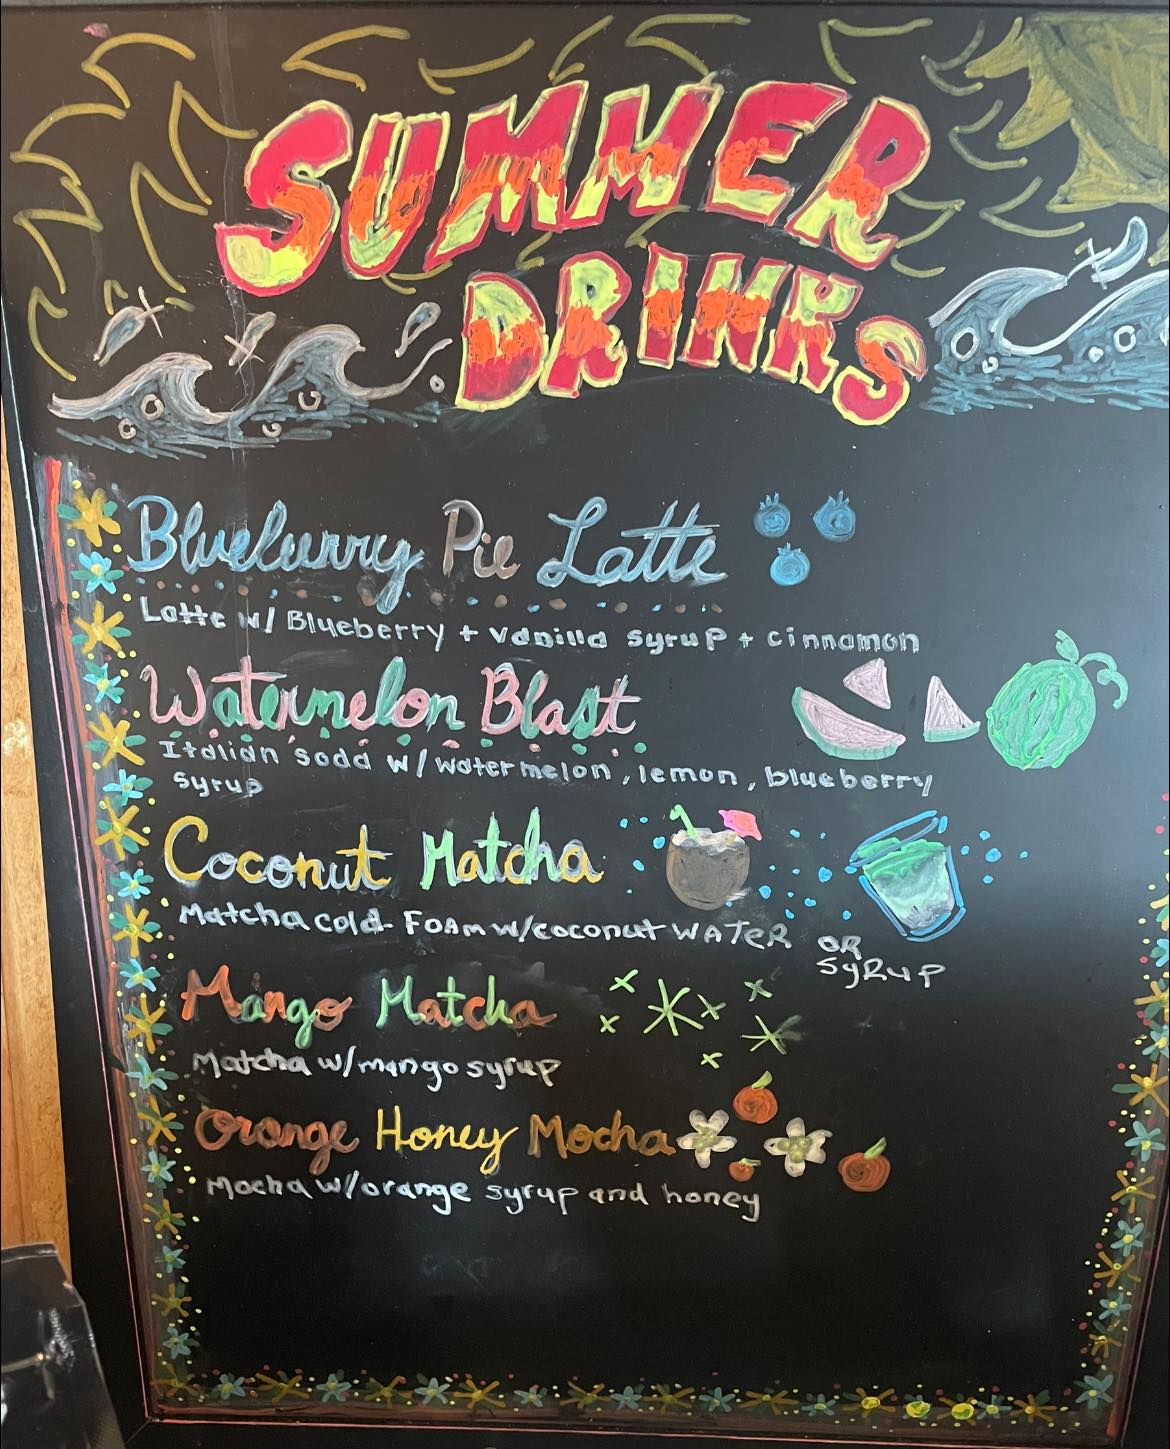 SUMMER
DRINKS
Blueburry Pie Latte
Latte w/ Blueberry + vanilla syrup + cinnamon
Watermelon Blast
Italian soda w/ watermelon, lemon, blueberry
syrup
Coconut Matcha
Matcha cold FOAM w/coconut WATER OR
SyRuP
Mango Matcha
Matcha w/mango syrup
Orange Honey Mocha
Mocha w/orange syrup and honey